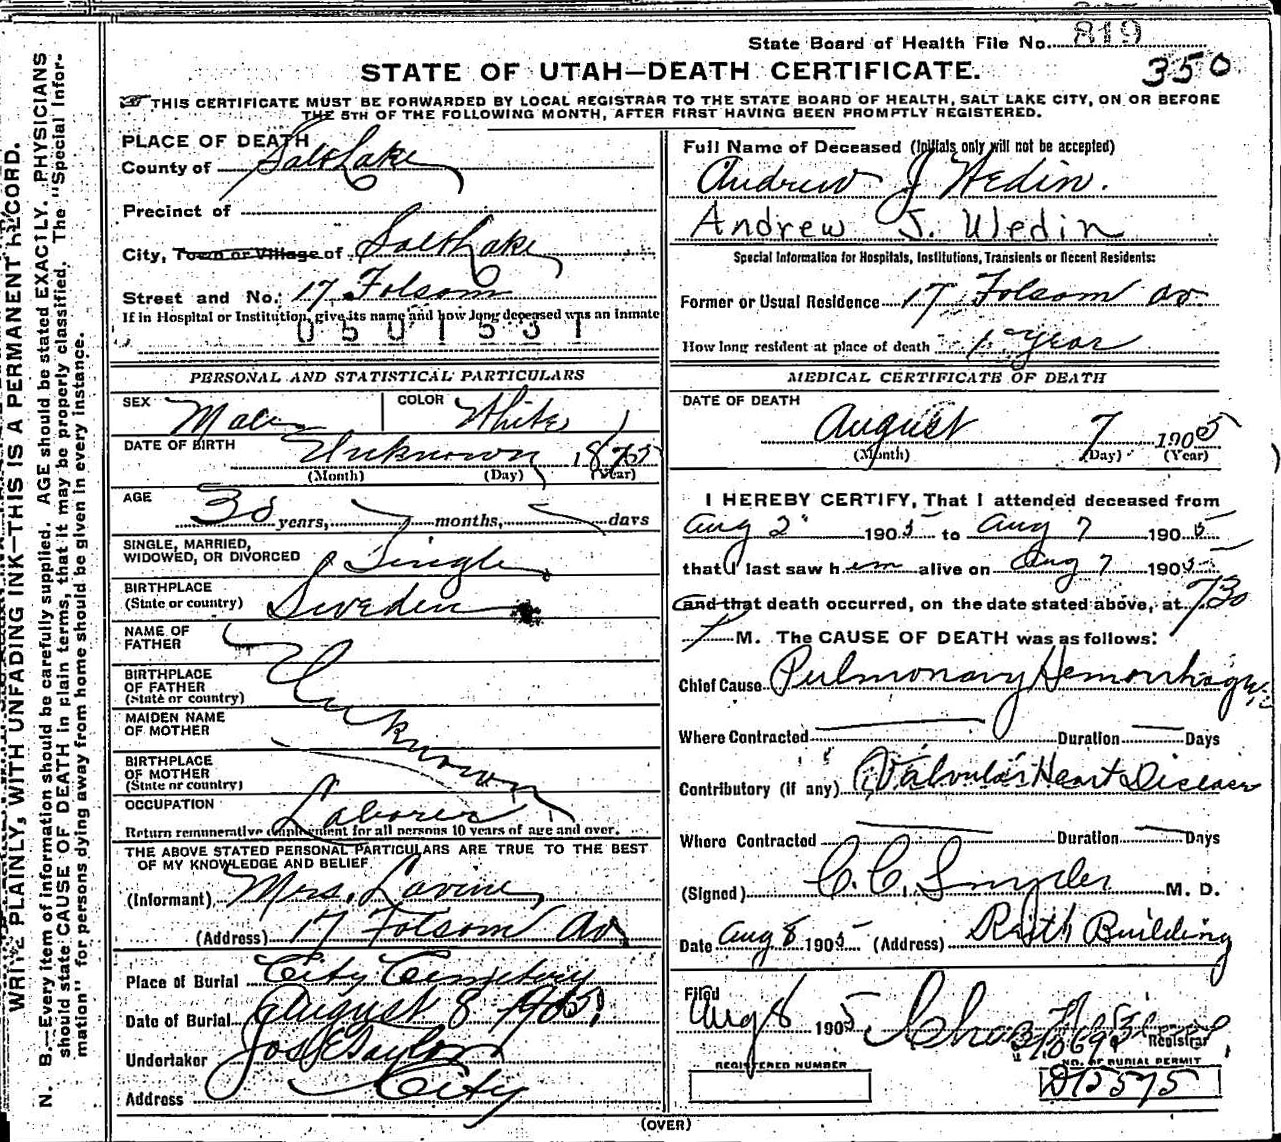 819
State Board of Health File No.
350
STATE OF UTAH—DEATH CERTIFICATE.
THIS CERTIFICATE MUST BE FORWARDED BY LOCAL REGISTRAR TO THE STATE BOARD OF HEALTH, SALT LAKE CITY, ON OR BEFORE
THE 5TH OF THE FOLLOWING MONTH, AFTER FIRST HAVING BEEN PROMPTLY REGISTERED.
WRITE PLAINLY, WITH UNFADING INK—THIS IS A PERMANENT RECORD.
N. B.—Every item of information should be carefully supplied. AGE should be stated EXACTLY. PHYSICIANS
should state CAUSE OF DEATH in plain terms, that it may be properly classified. The "Special Infor-
mation" for persons dying away from home should be given in every instance.
PLACE OF DEATH
County of Salt Lake
Precinct of
City, Town or Village of Salt Lake
Street and No. 17 Folsom
If in Hospital or Institution, give its name and how long deceased was an inmate
0501531
PERSONAL AND STATISTICAL PARTICULARS
SEX Male COLOR White
DATE OF BIRTH Unknown 1875
(Month) (Day) (Year)
AGE
30 years, months, days
SINGLE, MARRIED,
WIDOWED, OR DIVORCED Single
BIRTHPLACE
(State or country) Sweden
NAME OF
FATHER
BIRTHPLACE
OF FATHER
(State or country)
Unknown
MAIDEN NAME
OF MOTHER
BIRTHPLACE
OF MOTHER
(State or country)
OCCUPATION Laborer
Return remunerative employment for all persons 10 years of age and over.
THE ABOVE STATED PERSONAL PARTICULARS ARE TRUE TO THE BEST
OF MY KNOWLEDGE AND BELIEF
(Informant) Mrs. Lavine
(Address) 17 Folsom Av
Place of Burial City Cemetery
Date of Burial August 8 1905
Undertaker Jos E Taylor
Address City
Full Name of Deceased (Initials only will not be accepted)
Andrew J Wedin.
Andrew J. Wedin
Special Information for Hospitals, Institutions, Transients or Recent Residents:
Former or Usual Residence 17 Folsom av
How long resident at place of death 1 year
MEDICAL CERTIFICATE OF DEATH
DATE OF DEATH
August 7 1905
(Month) (Day) (Year)
I HEREBY CERTIFY, That I attended deceased from
Aug 2 1905 to Aug 7 1905
that I last saw him alive on Aug 7 1905
and that death occurred, on the date stated above, at 730
P M. The CAUSE OF DEATH was as follows:
Chief Cause Pulmonary Hemorrhage
Where Contracted Duration Days
Contributory (if any) Valvular Heart Disease
Where Contracted Duration Days
(Signed) C. C. Snyder M. D.
Date Aug 8 1905 (Address) Building
Filed
Aug 8 1905
Registrar
REGISTERED NUMBER
NO. OF BURIAL PERMIT
D12575
(OVER)